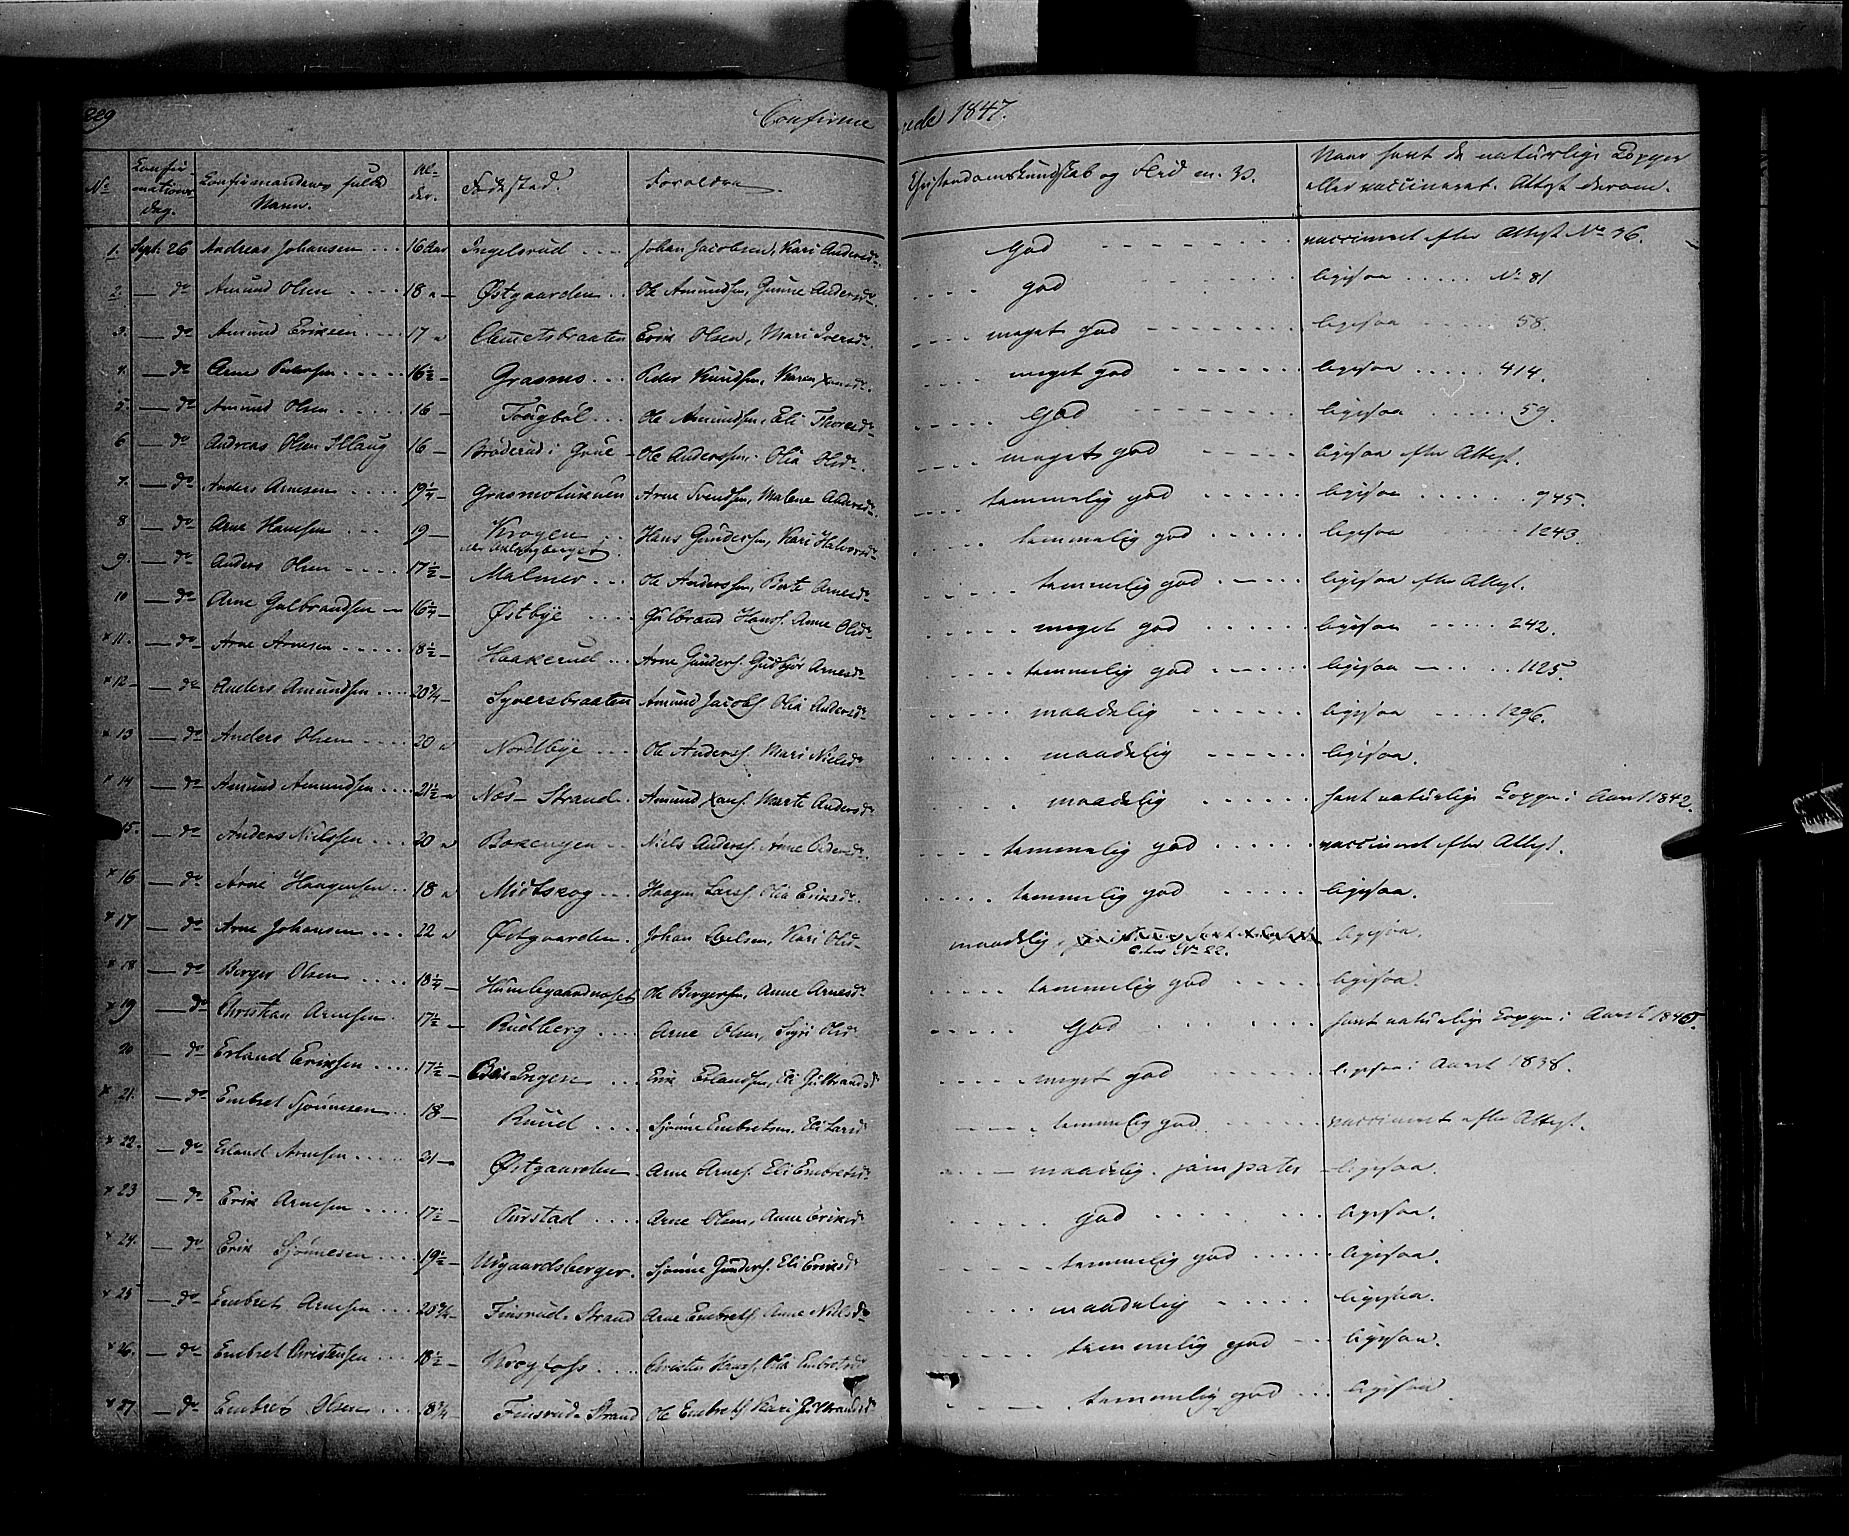 229 Confirmerede 1847.
No Confirmations dag. Confirmandens fulde Navn. Alder. Fødested. Forældre. Christendomskundskab og Flid m. v. Naar havt de naturlige Kopper eller vaccineret. Attest derom.
1. Sept. 26 Andreas Johansen 16 Aar Ingelsrud Johan Jacobsen, Kari Andersdr. God vaccineret efter Attest No 76.
2. — do Amund Olsen 18 " Østgaarden Ole Amundsen, Gunne Andersdr. god ligesaa No 81
3. — do Amund Eriksen 17 " Clemetsbraaten Erik Olsen, Mari Iversdr. meget god ligesaa 58.
4. — do Arne Pedersen 16½ — Grasmo Peder Knudsen, Karen meget god ligesaa 414.
5. — do Amund Olsen 16 — Ole Amundsen, Eli Thoresdr. God ligesaa 59.
6 — do Andreas Olsen 16 — Brøderud i Grue Ole Anderssen, Olia Olsdr. meget god ligesaa efter Attest.
7. — do Anders Arnesen 19¼ — Arne Svendsen, Malene Andersdr. temmelig god ligesaa 945.
8 — do Arne Hansen 19 — Krogen Hans Gundersen, Kari Halvorsdr. temmelig god ligesaa 1243.
9. — do Anders Olsen 17½ — Malmer Ole Anderssen, Berte Arnesdr. temmelig god ligesaa efter Attest.
10 — do Arne Gulbrandsen 16¼ — Østbye Gulbrand Hans. Anne Olsdr. meget god ligesaa 242.
x 11. — do Arne Arnesen 18½ — Haakerud Arne Gunders. Gudbjør Arnesdr. temmelig god ligesaa 1125.
x 12 — do Anders Amundsen 20¾ — Syversbraaten Amund Jacobs. Olia Andersdr. maadelig ligesaa 1296.
x 13 — do Anders Olsen 20 " Nordbye Ole Anders. Mari Nielsdr. maadelig ligesaa.
x 14 — do Amund Amundsen 21½ — Nos-Strand Amund Hans. Marte Andersdr. maadelig havt naturlige Kopper i Aaret 1842.
15. — do Anders Nielssen 20 " Niels Anders. Anne Pedersdr. temmelig god vaccineret efter Attest.
x 16 — do Arne Haagensen 18 " Midtskog Haagen Lars. Olia Eriksdr. temmelig god ligesaa.
x 17 — do Arne Johansen 22 " Østgaarden Johan Axelsen, Kari Olsdr. maadelig ligesaa.
No 22.
x 18 — do Berger Olsen 18¼ — Humlegaardnoset Ole Bergersen, Anne Arnesdr. temmelig god ligesaa.
x 19 — do Christian Arnesen 17½ — Rudberg Arne Olsen, Sigri Olsdr. God havt naturlige Kopper i Aaret 1845.
20 — do Erland Eriksen 17½ — Engen Erik Erlandsen, Eli Gulbrandsdr. meget god ligesaa i Aaret 1838.
x 21. — do Embret Sjønnesen 18 — Ruud Sjønne Embretsen, Eli Larsdr. temmelig god vaccineret efter Attest.
x 22. — do Erland Arnesen 21 — Østgaarden Arne Arnes. Eli Embretsdr. maadelig. ligesaa.
x 23 — do Erik Arnesen 17½ — Aurstad Arne Olsen, Anne Eriksdr. god ligesaa.
x 24. — do Erik Sjønnesen 19½ — Utgaardsberget Sjønne Gunders. Eli Eriksdr. temmelig god ligesaa.
x 25 — do Embret Arnesen 20¾ — Finsrud-Strand Arne Embrets. Anne Nielsdr. maadelig ligesaa.
x 26. — do Embret Christensen 18½ — Krogfoss Christen Hans. Olia Embretsdr. temmelig god ligesaa.
x 27 — do Embret Olsen 18¾ — Finsrud-Strand Ole Embrets. Kari Gulbrandsdr. temmelig god ligesaa.